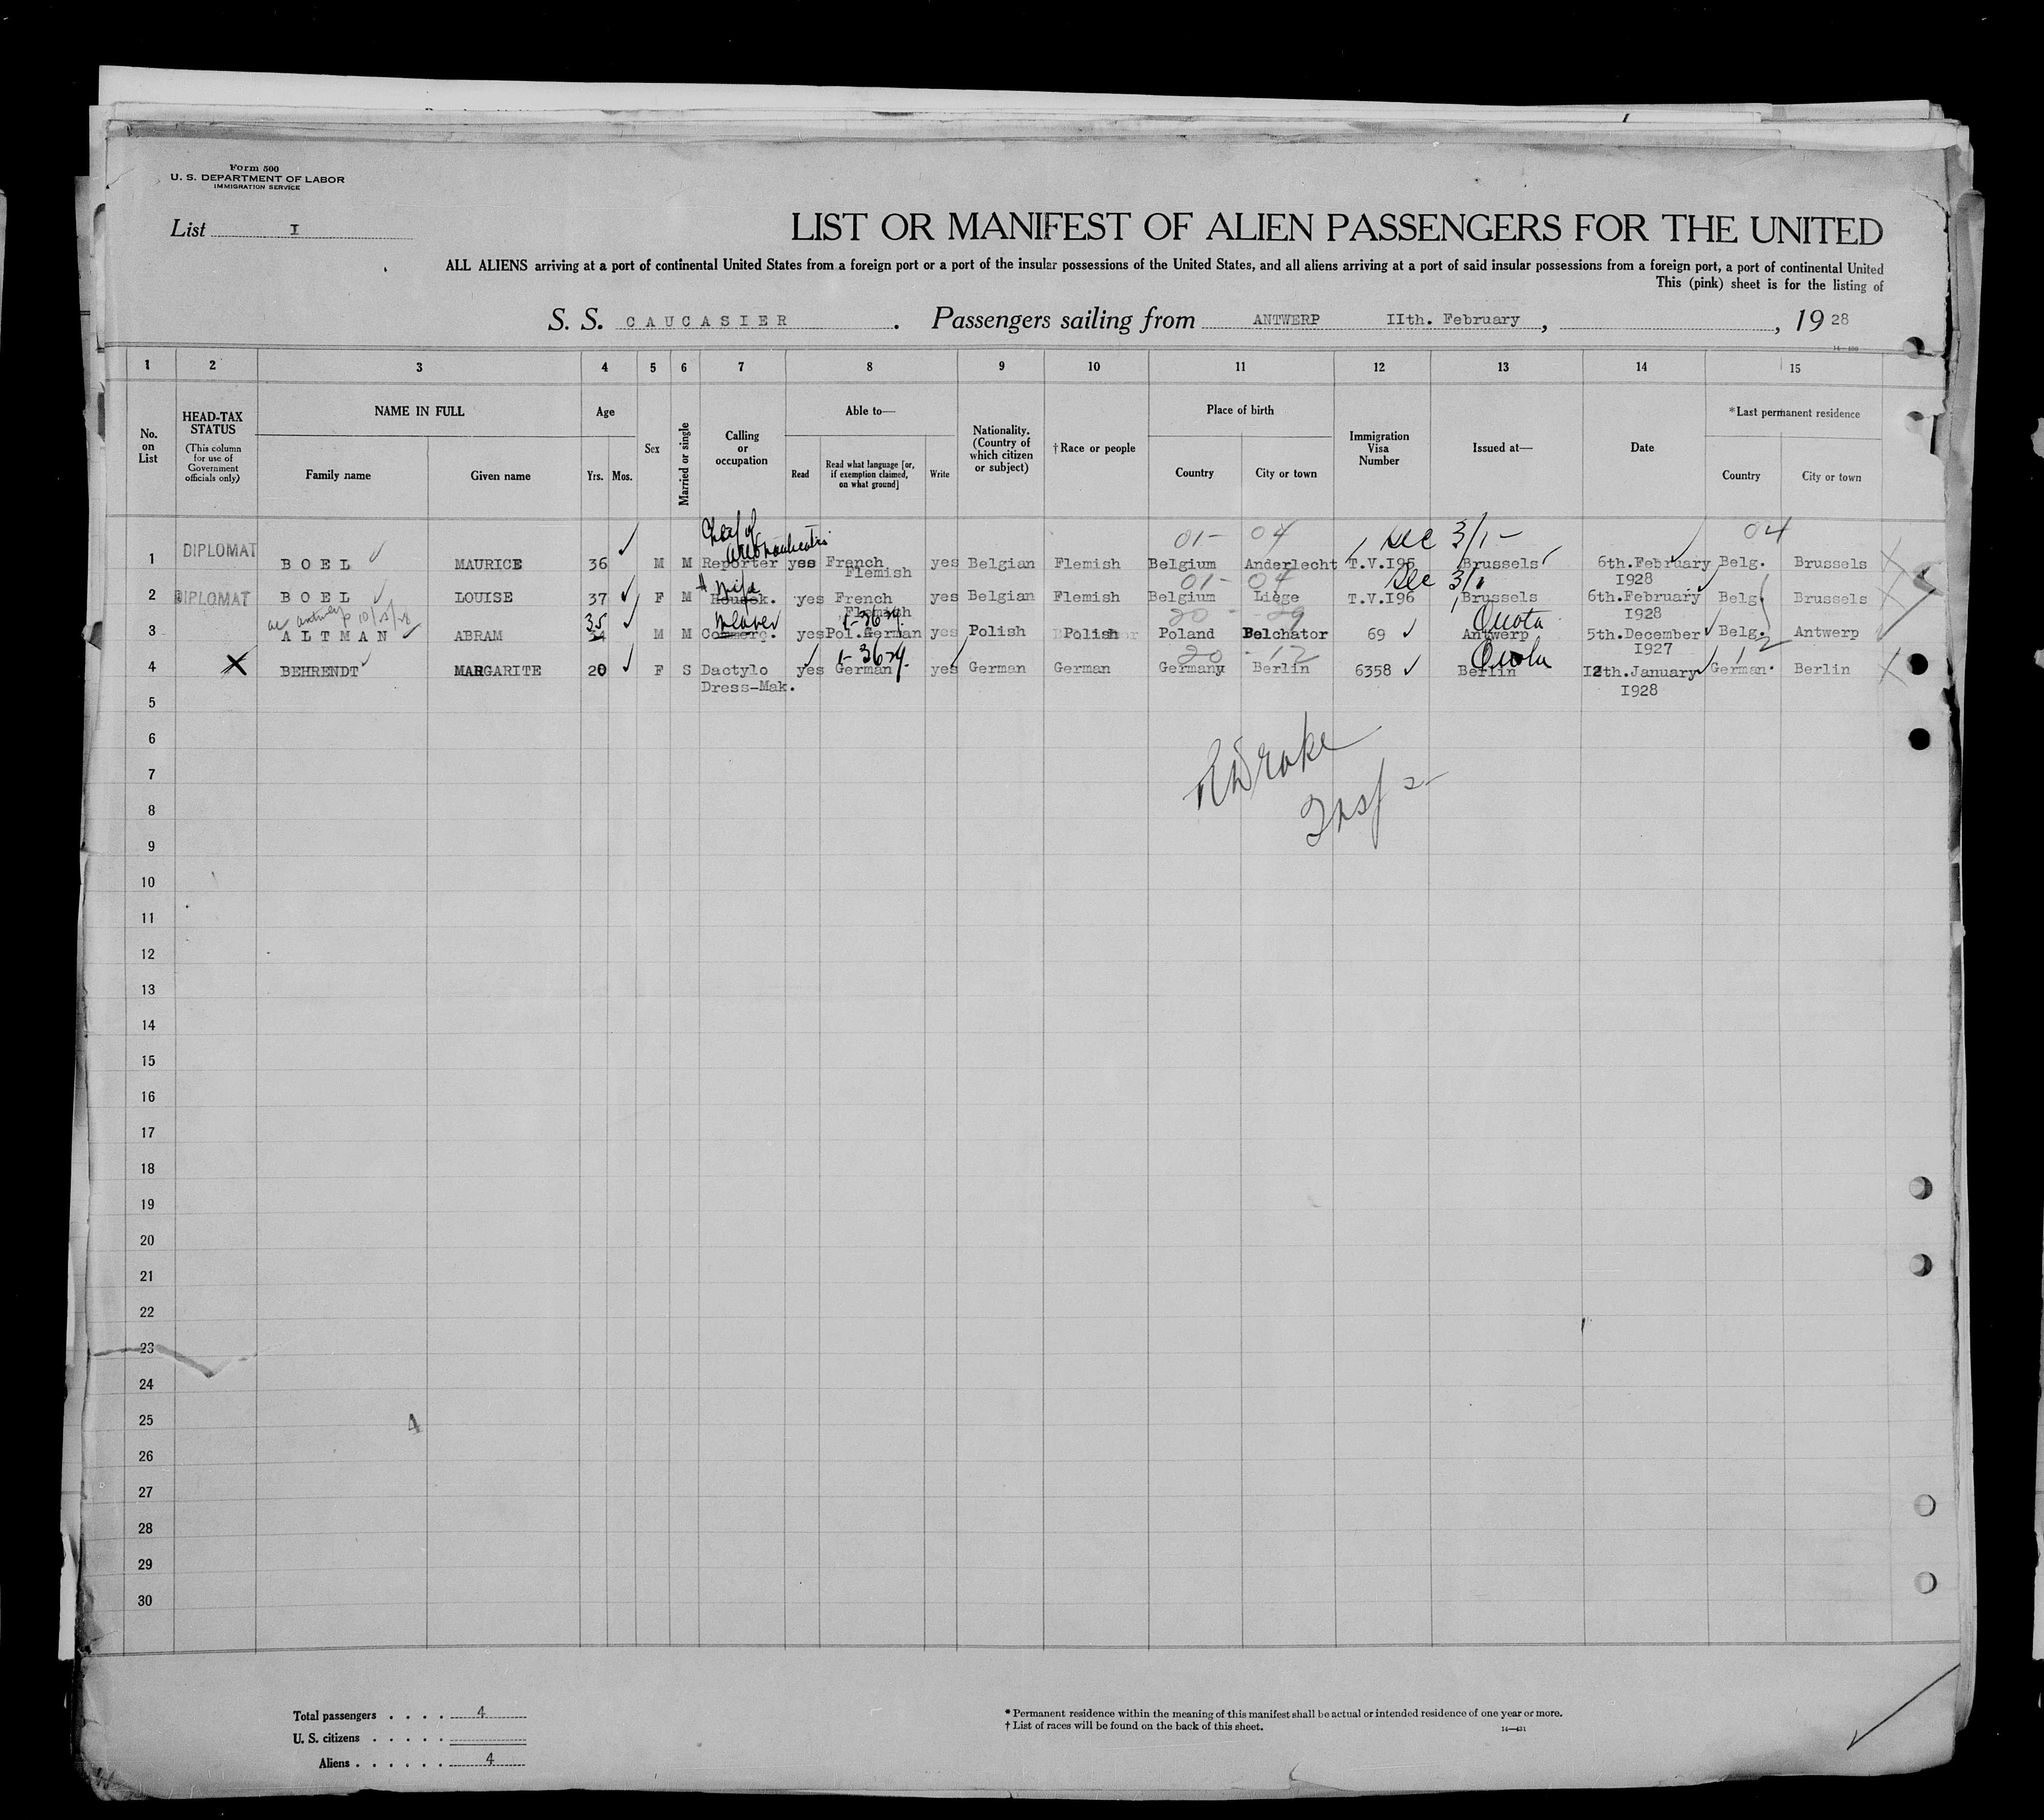 Form 500
U. S. DEPARTMENT OF LABOR
IMMIGRATION SERVICE
List I
LIST OR MANIFEST OF ALIEN PASSENGERS FOR THE UNITED
ALL ALIENS arriving at a port of continental United States from a foreign port or a port of the insular possessions of the United States, and all aliens arriving at a port of said insular possessions from a foreign port, a port of continental United
This (pink) sheet is for the listing of
S. S. CAUCASIER. Passengers sailing from ANTWERP IIth. February, , 19 28
1 2 3 4 5 6 7 8 9 10 11 12 13 14 15
No. on List
HEAD-TAX STATUS (This column for use of Government officials only)
NAME IN FULL
Family name Given name
Age
Yrs. Mos.
Sex
Married or single
Calling or occupation
Able to—
Read
Read what language [or, if exemption claimed, on what ground]
Write
Nationality. (Country of which citizen or subject)
†Race or people
Place of birth
Country City or town
Immigration Visa Number
Issued at—
Date
*Last permanent residence
Country City or town
Chief of
01- 04 3/1- 04
1 DIPLOMAT BOEL MAURICE 36 M M Reporter yes French yes Belgian Flemish Belgium Anderlecht T.V.I95 Brussels 6th.February Belg. Brussels
Flemish I928
wife 01- 04
2 DIPLOMAT BOEL LOUISE 37 F M Housek. yes French yes Belgian Flemish Belgium Liège T.V.I96 Brussels 6th.February Belg. Brussels
Flemish I928
35 Weaver 20 - 29 Quota
3 ALTMAN ABRAM 34 M M Commerc. yes Pol.German yes Polish Polish Poland Belchator 69 Antwerp 5th.December Belg. Antwerp
I927
20 - 12 Quota
4 X BEHRENDT MARGARITE 20 F S Dactylo yes German yes German German Germany Berlin 6358 Berlin I2th.January German. Berlin
Dress-Mak. I928
5
6
7
Drake
8
Insp
9
10
11
12
13
14
15
16
17
18
19
20
21
22
23
24
25
4
26
27
28
29
30
Total passengers . . . . 4
U. S. citizens . . . . .
Aliens . . . . . . 4
* Permanent residence within the meaning of this manifest shall be actual or intended residence of one year or more.
† List of races will be found on the back of this sheet.
14—431